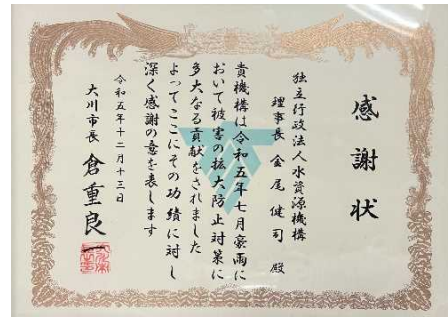 感謝状
独立行政法人水資源機構
理事長 金尾健司 殿
貴機構は令和五年七月豪雨に
おいて被害の拡大防止対策に
多大なる貢献をされました
よってここにその功績に対し
深く感謝の意を表します
令和五年十二月十三日
大川市長 倉重良一